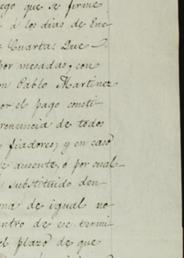 ego que se firme
à los dias de Ene
Cuartas Que
por mesadas, con
on Pablo Martinez
or el pago consti
renuncia de todos
fiadores; y en caso
se ausente, o por cual
substituido den
na de igual no
entro de ese termi
el plazo de que